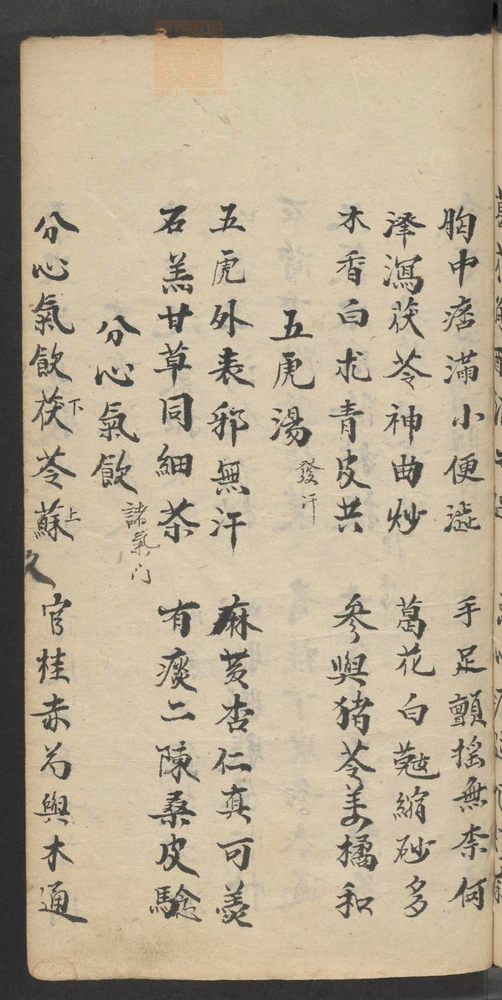 胸中痞滿小便澁　手足顫摇無奈何
泽瀉茯苓神曲炒　葛花白蔻縮砂多
木香白朮青皮共　参與猪苓姜橘和
五虎湯　發汗
五虎外表邪無汗　麻黄杏仁真可羡
石羔甘草同細茶　有痰二陳桑皮驗
分心氣飲　諸氣门
分心氣飲茯下苓蘇上　官桂赤芍與木通